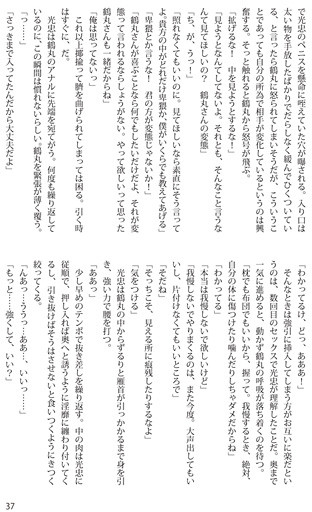 で光忠のペニスを懸命に咥えていた穴が曝される。入り口は
太い物を手放したばかりでだらしなく緩んでひくついてい
る、と言ったら鶴丸に怒られてしまいそうだが、こういうこ
とであっても自分の所為で相手が変化しているというのは興
奮する。そっと触れると鶴丸から怒号が飛ぶ。
「拡げるな！　中を見ようとするな！」
「見ようとなんてしてないよ。それとも、そんなこと言うな
んて見てほしいの？　鶴丸さんの変態」
「ち、が、うっ！」
「照れなくてもいいのに。見てほしいなら素直にそう言って
よ。貴方の中がどれだけ卑猥か、僕がいくらでも教えてあげる」
「卑猥とか言うな！　君の方が変態じゃないか！」
「鶴丸さんが喜ぶことなら何でもしたいだけだよ。それが変
態って言われるならしょうがない。やって欲しいって思った
鶴丸さんも一緒だからね」
「俺は思ってないっ」
　これ以上揶揄って臍を曲げられてしまっては困る。引く時
はすぐに、だ。
　光忠は鶴丸のアナルに先端を宛てがう。何度も繰り返して
いるのに、この瞬間は慣れないらしい。鶴丸を緊張が薄く覆う。
「っ……」
「さっきまで入ってたんだから大丈夫だよ」
「わかってるけ、どっ、あああ！」
　そんなときは強引に挿入してしまう方がお互いに楽だとい
うのは、数回目のセックスで光忠が理解したことだ。奥まで
一気に進めると、動かず鶴丸の呼吸が落ち着くのを待つ。
「枕でも布団でもいいから、握って。我慢するとき、絶対、
自分の体に傷つけたり噛んだりしちゃダメだからね」
「わかってる」
「本当は我慢しないで欲しいけど」
「我慢しないでやりまくるのは、また今度。大声出してもい
いし、片付けなくてもいいところで」
「そだね」
「そっちこそ、見える所に痕残したりするなよ」
「気をつける」
　光忠は鶴丸の中からずるりと雁首が引っかかるまで身を引
き、強い力で腰を打つ。
「ああっ」
　少し早めのテンポで抜き差しを繰り返す。中の肉は光忠に
従順で、押し入れば奥へと誘うように淫靡に纏わり付いてく
るし、引き抜けばそうはさせないと食いつくようにきつく
絞ってくる。
「んあっ……うぅっ……ああ、いいっ……」
「もっと……強くして、いい？」
37